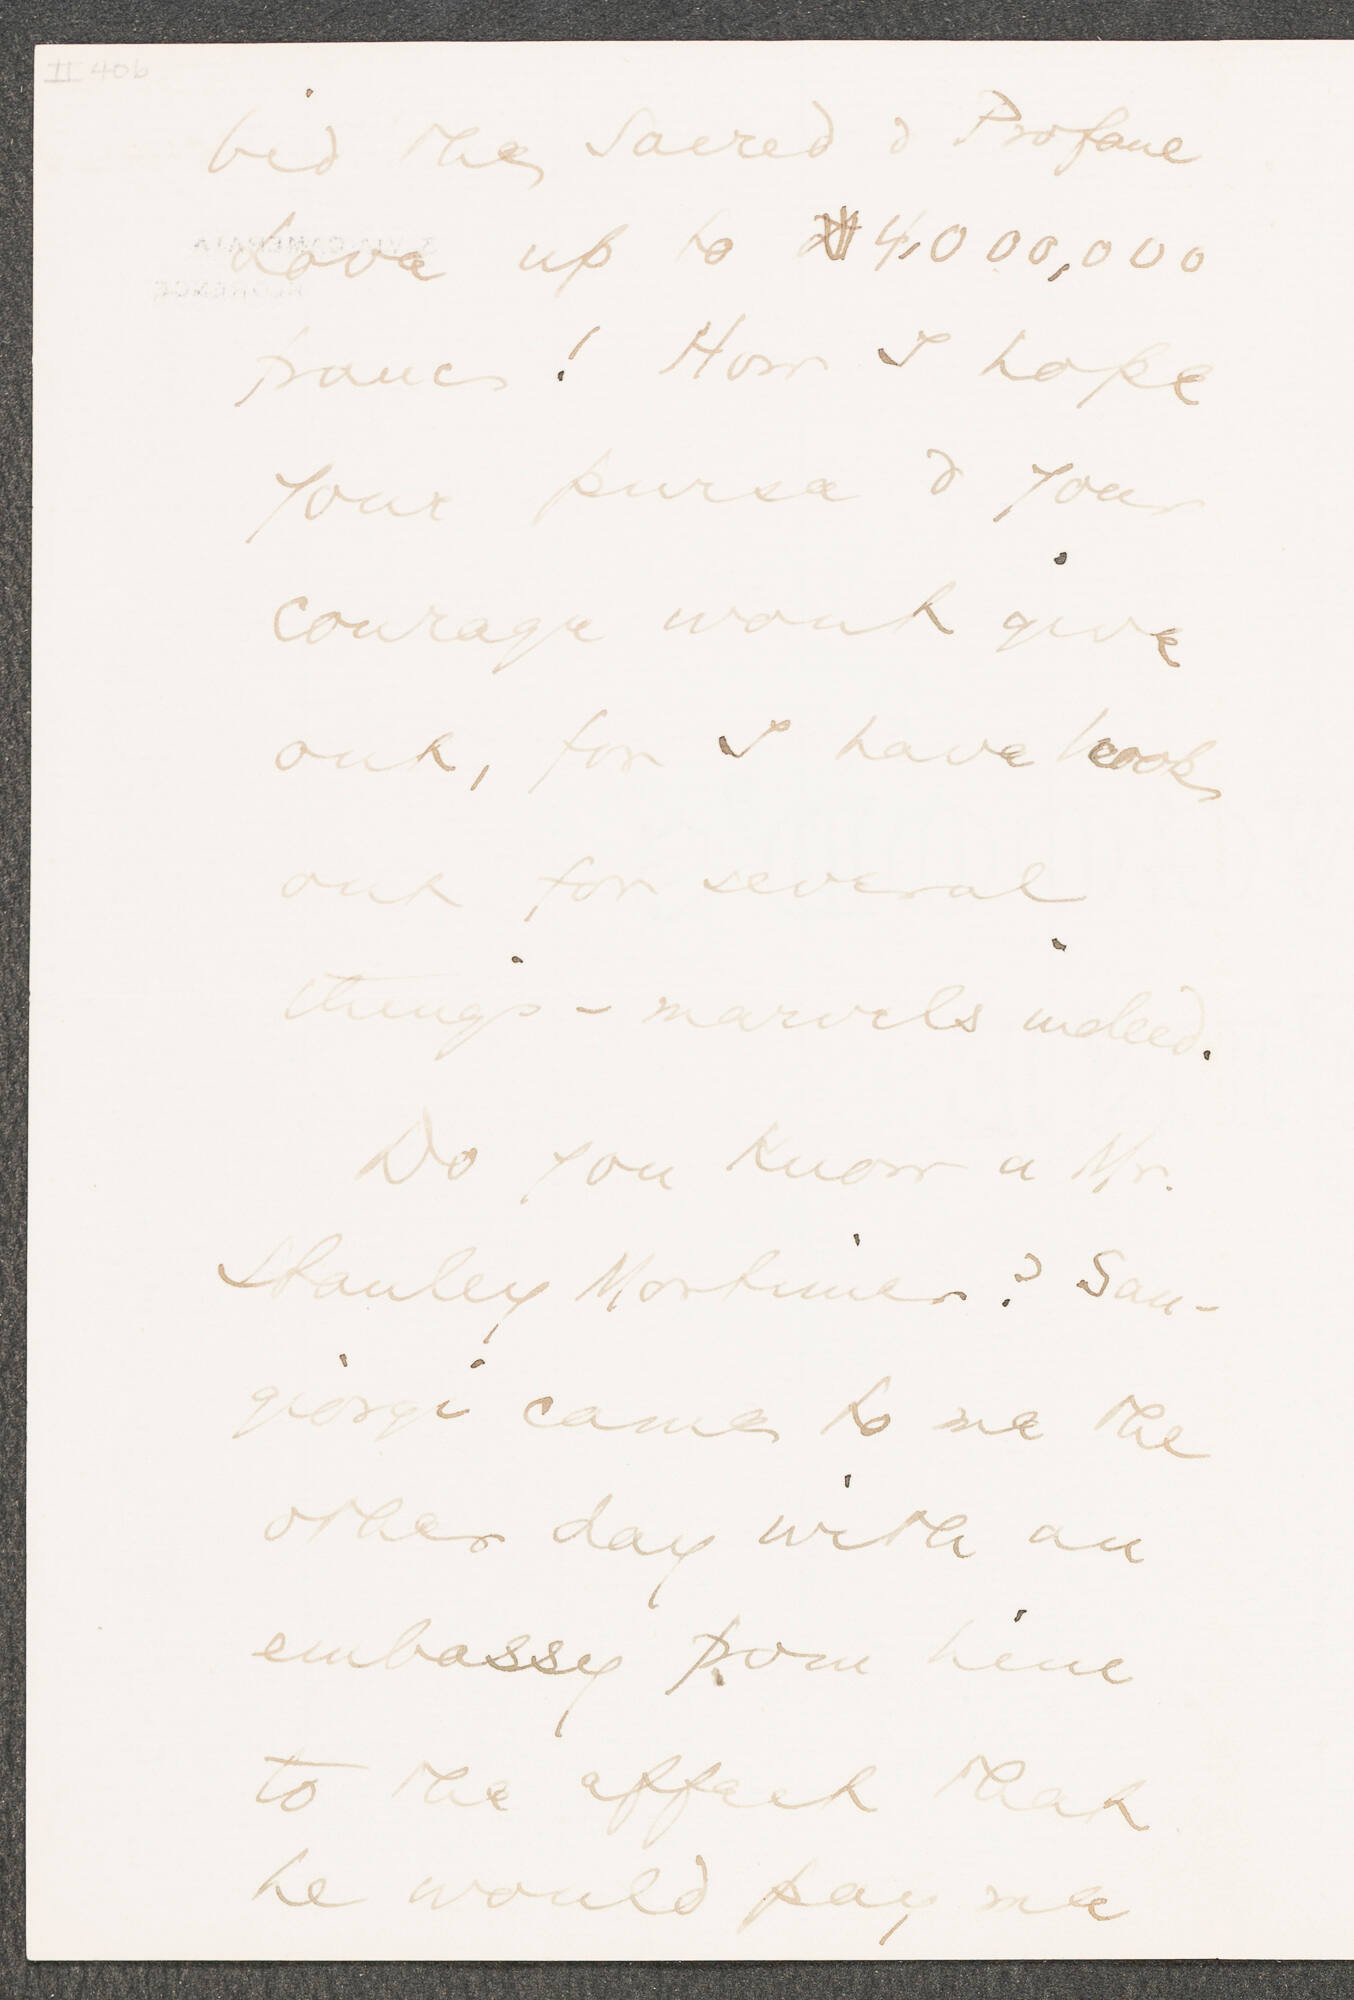 II 406
bid the Sacred & Profane
Love up to 4,000,000
francs! How I hope
your purse & your
courage wont give
out, for I have look
out for several
things - marvels indeed.
Do you know a Mr.
Stanley Mortimer? San-
giorgi came to me the
other day with an
embassy from him
to the effect that
he would pay me
3, VIA CAMERATA
FLORENCE